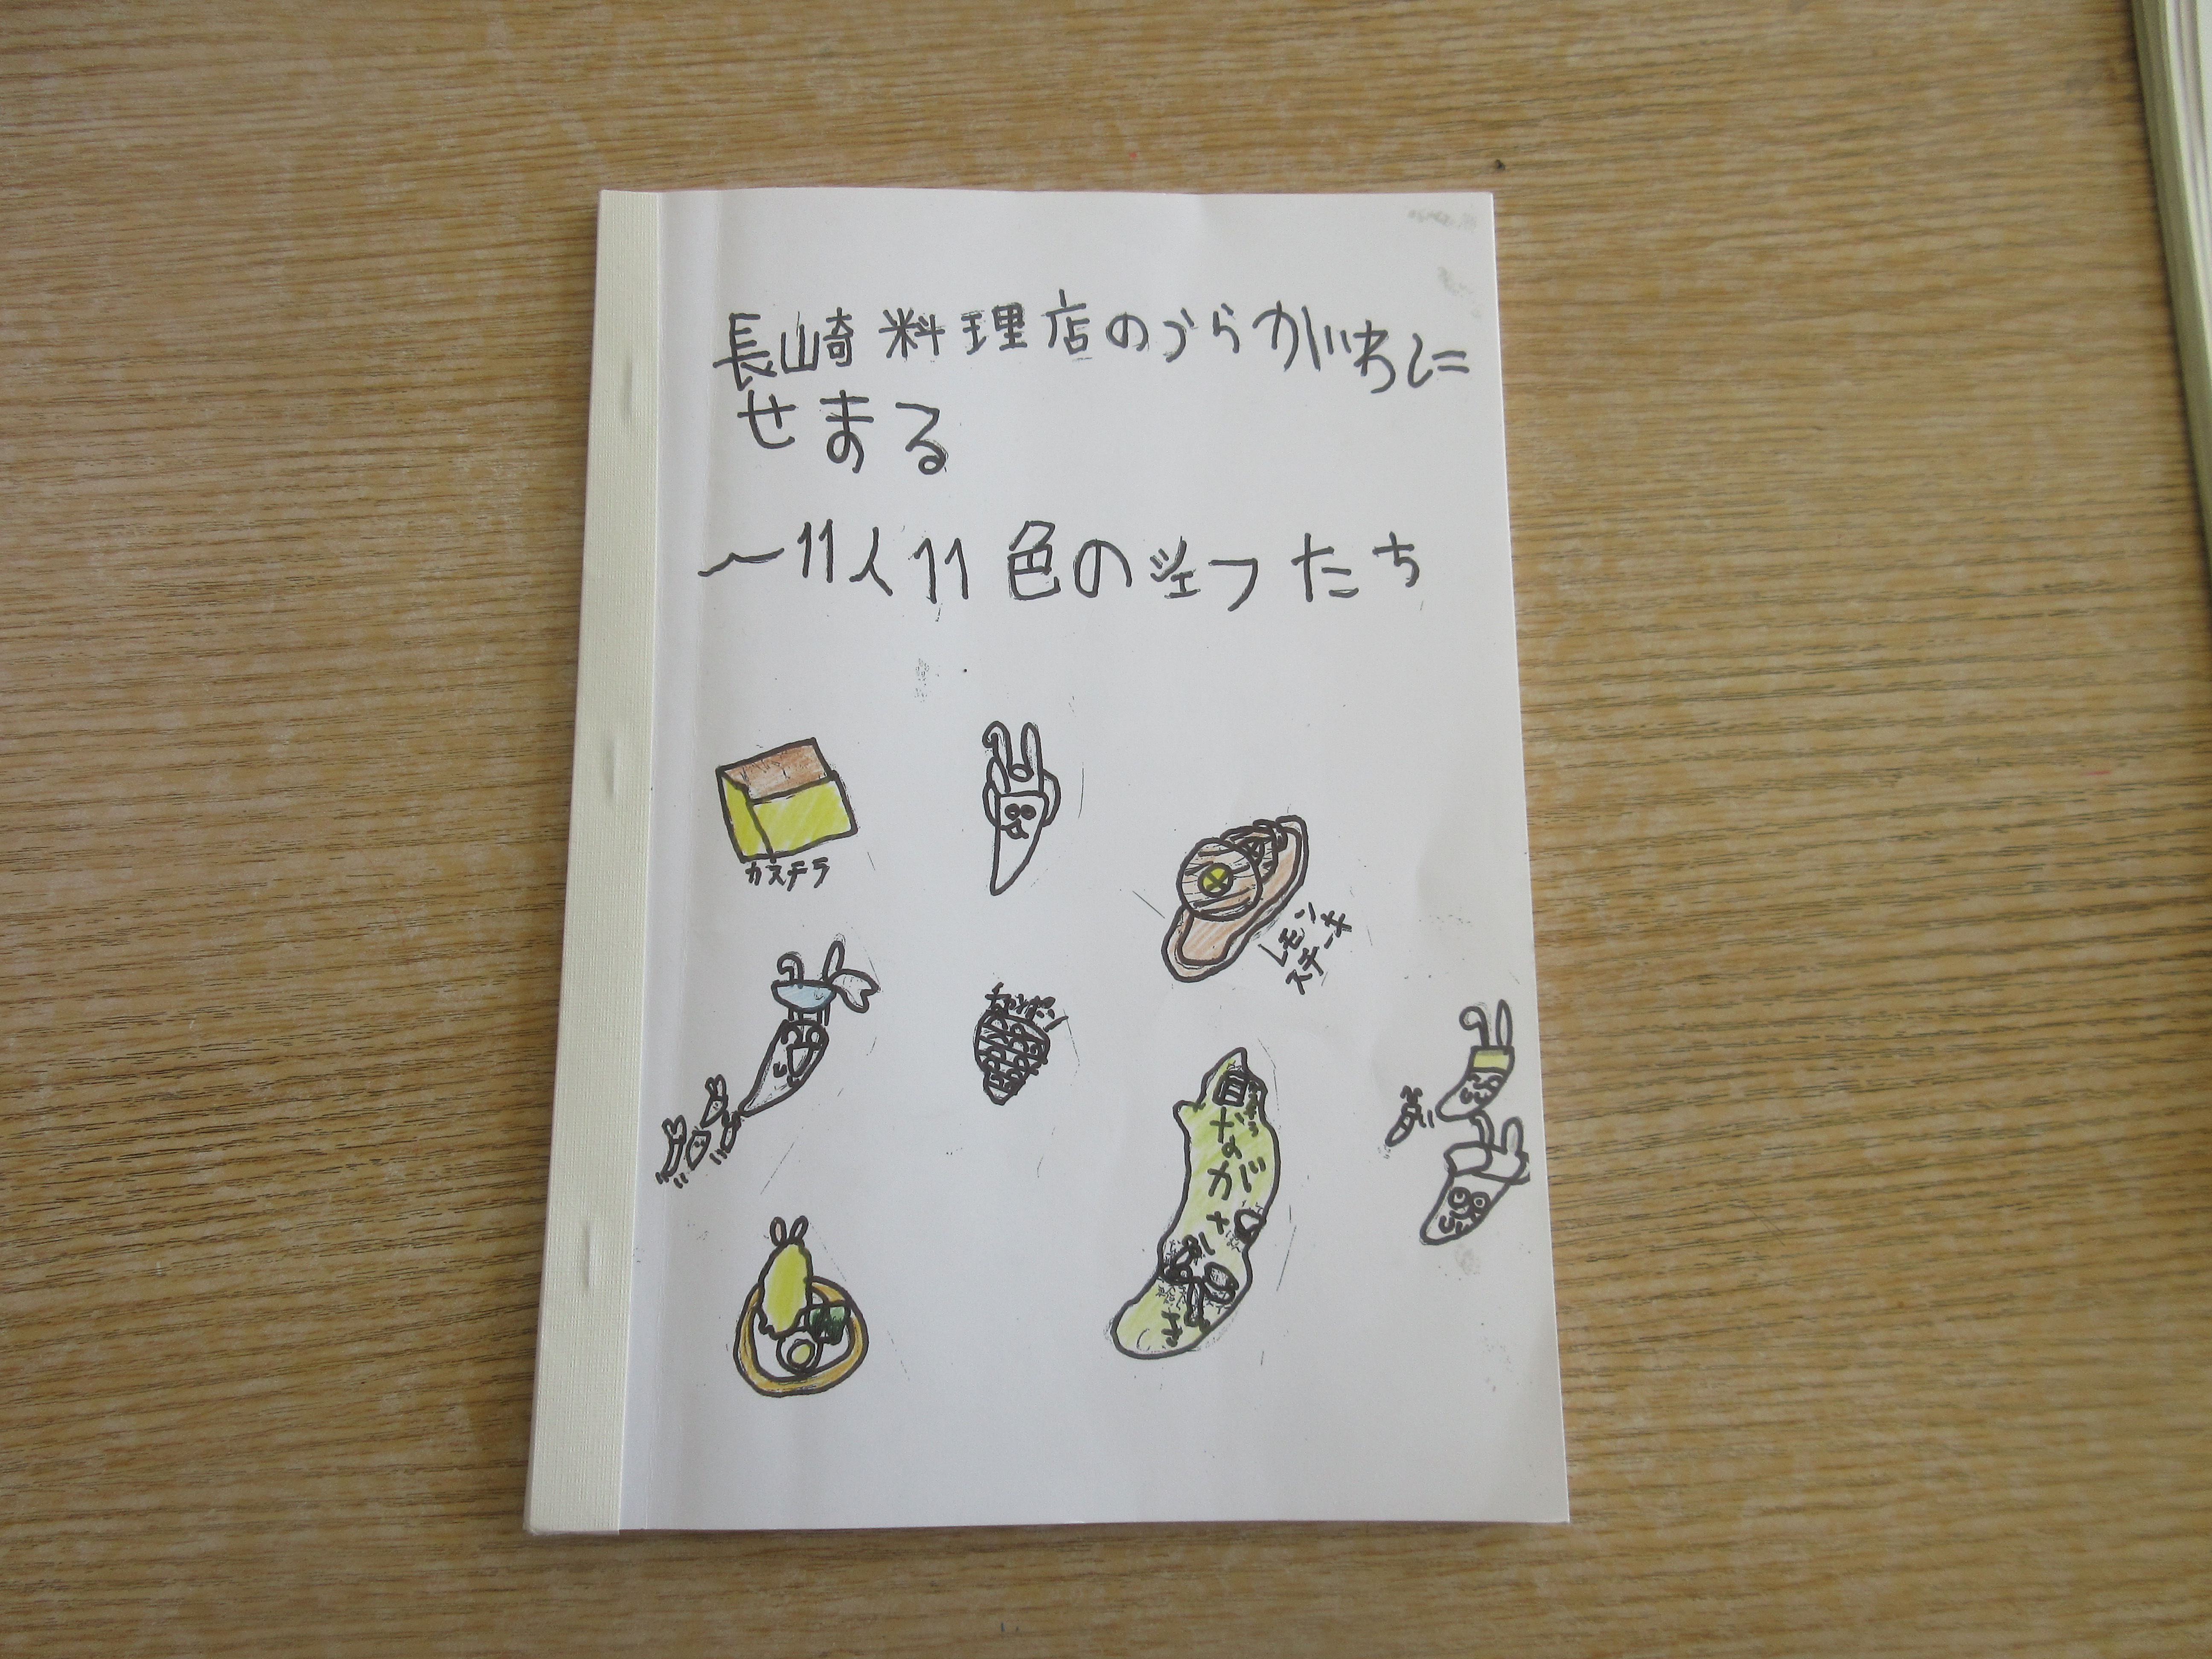 長崎料理店のうらがわに
せまる
～11人11色のシェフたち
カステラ
レモン
ステーキ